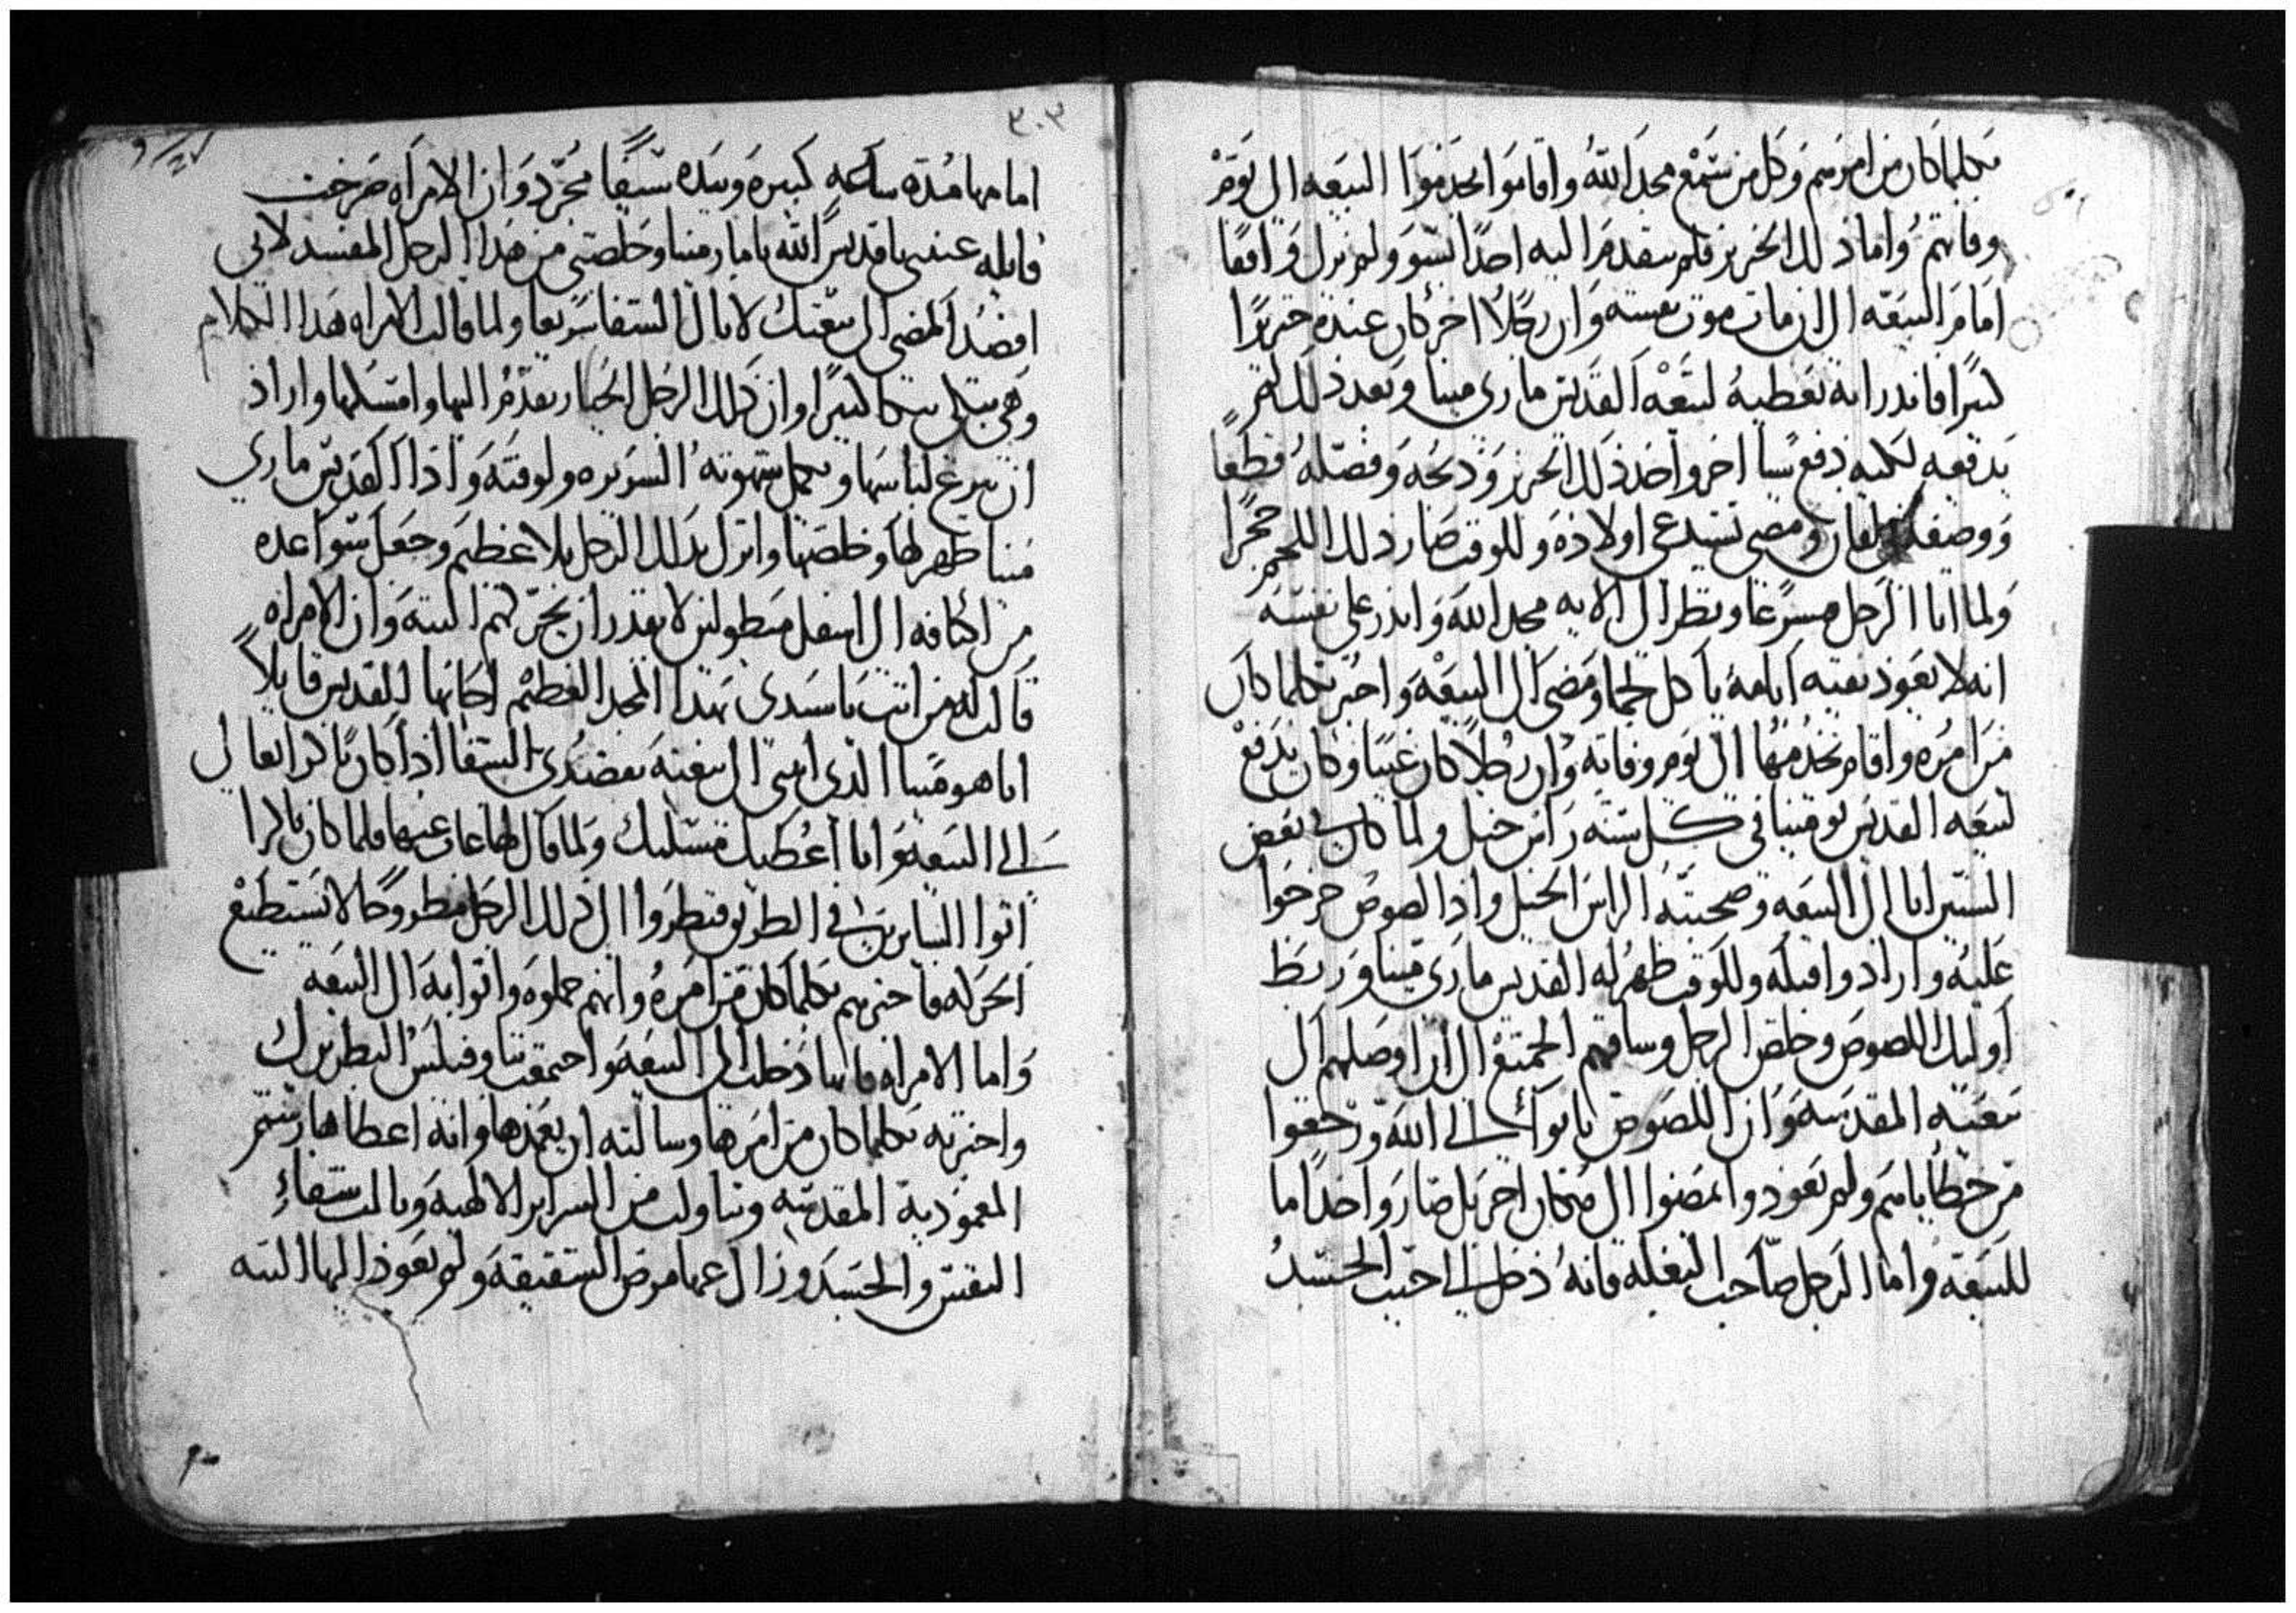 بكلما كان من امرهم وكل من سمع مجد الله واقاموا يخدموا البيعه الي يوم
وفاتهم واما ذلك الخنزير فلم يتقدم اليه احدا بسوء ولم يزل واقفا
امام البيعه الي ان مات موت نفسه وان رجلا اخر كان عنده خنزيرا
كبيرا فاندر انه يعطيه لبيعة القديس ماري مينا وبعد ذلك لم
يدفعه لكنه دفع شيا اخر واخذ ذلك الخنزير وذبحه وفصله قطعا
ومضي يستدعي اولاده وللوقت صار ذلك اللحم حجرا
ولما اتا الرجل مسرعا ونظر الي الايه مجد الله واندر علي نفسه
انه لا يعود بقية ايامه ياكل لحما ومضي الي البيعه واخبر بكلما كان
من امره واقام يخدمها الي يوم وفاته وان رجلا كان غنيا وكان يدفع
لبيعه القديس بو مينا في كل سنه راس خيل ولما كان في بعض
السنين اتا الي البيعه وصحبته الراس الخيل واذا لصوص خرجوا
عليه وارادوا قتله وللوقت ظهر له القديس ماري مينا وربط
اوليك اللصوص وخلص الرجل وساقهم الجميع الي ان اوصلهم الي
بيعته المقدسه وان اللصوص تابوا الي الله ورجعوا
من خطاياهم ولم يعودوا يمضوا الي مكان اخر بل صاروا خداما
للبيعه واما الرجل صاحب البغله فانه دخل الي احب الجسد
٣٠٣
امامها مدة ساعه كبيره وبيده سيفا مجرد وان الامراه صرخت
قايله عينني يا قديس الله يا مار مينا وخلصني من هذا الرجل المفسد لاني
اقصد المضي الي بيعتك لانال الشفا سريعا ولما قالت الامراه هذا الكلام
وهي تبكي بكا كثيرا وان ذلك الرجل الجبار تقدم اليها وامسكها واراد
ان ينزع لباسها ويكمل شهوته الشريره ولوقته واذا القديس ماري
مينا ظهر لها وخلصها وانزل بذلك الرجل بلا عظيم وجعل سواعده
من اكتافه الي اسفل مبطولين لا يقدر ان يحركهم البته وان الامراه
قالت له من انت يا سيدي بهذا المجد العظيم اجابها القديس قايلا
انا هو مينا الذي اتيتي الي بيعته بقصدك الشفا اذا كان باكرا تعالي
الي البيعه وانا اعطيك مسلتك ولما قال لها غاب عنها فلما كان باكرا
اتوا السايرين في الطريق فنظروا الي ذلك الرجل مطروحا لا يستطيع
الحركه فاخبرهم بكلما كان من امره وانهم حملوه واتوا به الي البيعه
واما الامراه فانها دخلت الي البيعه واجتمعت بتاوفيلس البطريرك
واخبرته بكلما كان من امرها وسالته ان يعمدها وانه اعطاها رشم
المعموديه المقدسه وتناولت من السراير الالهيه ونالت شفاء
النفس والجسد وزال عنها مرض الشقيقه ولم يعود اليها البته